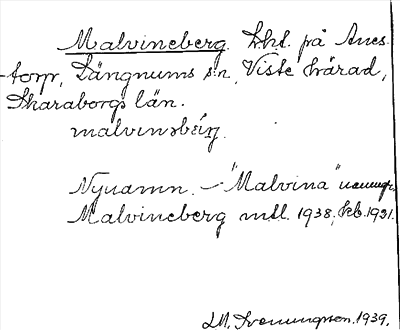 Malvineberg. lht. på Anes-
torp, Längnums sn, Viste härad,
Skaraborgs län.
malvinsbärj.
Nynamn. – "Malvina"
Malvineberg mtl. 1938, kb. 1931.
1939.